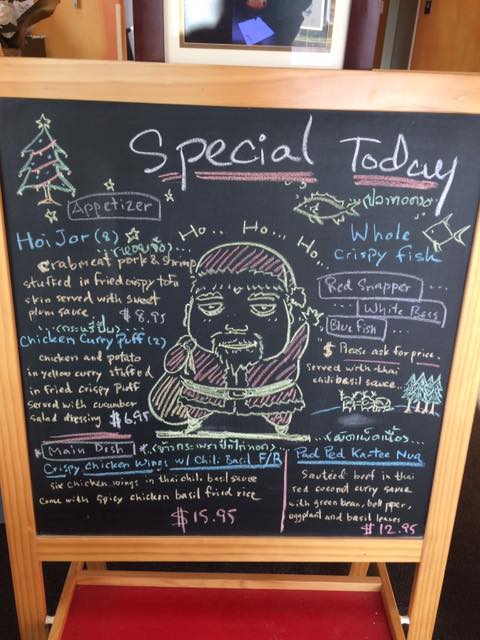 Special Today
Appetizer
Hoi Jor (8)
(หอยจ๊อ)...
crabmeat pork & shrimp
stuffed in fried crispy tofu
skin served with sweet
plum sauce $8.95
(กะหรี่ปั๊บ)
Chicken Curry Puff (2)
chicken and potato
in yellow curry stuffed
in fried crispy puff
served with cucumber
salad dressing $6.95
Ho... Ho... Ho...
ปลาทอด
Whole
crispy fish
Red Snapper...
...White Bass
Blue fish...
$ Please ask for price.
served with thai
chili basil sauce...
Main Dish
Crispy Chicken Wings w/ Chili Basil F/R
six chicken wings in thai chili basil sauce
come with spicy chicken basil fried rice
$15.95
Pad Ped Ka-tee Nua
Sauteed beef in thai
red coconut curry sauce
with green bean, bell pper,
eggplant and basil leaves
$12.95